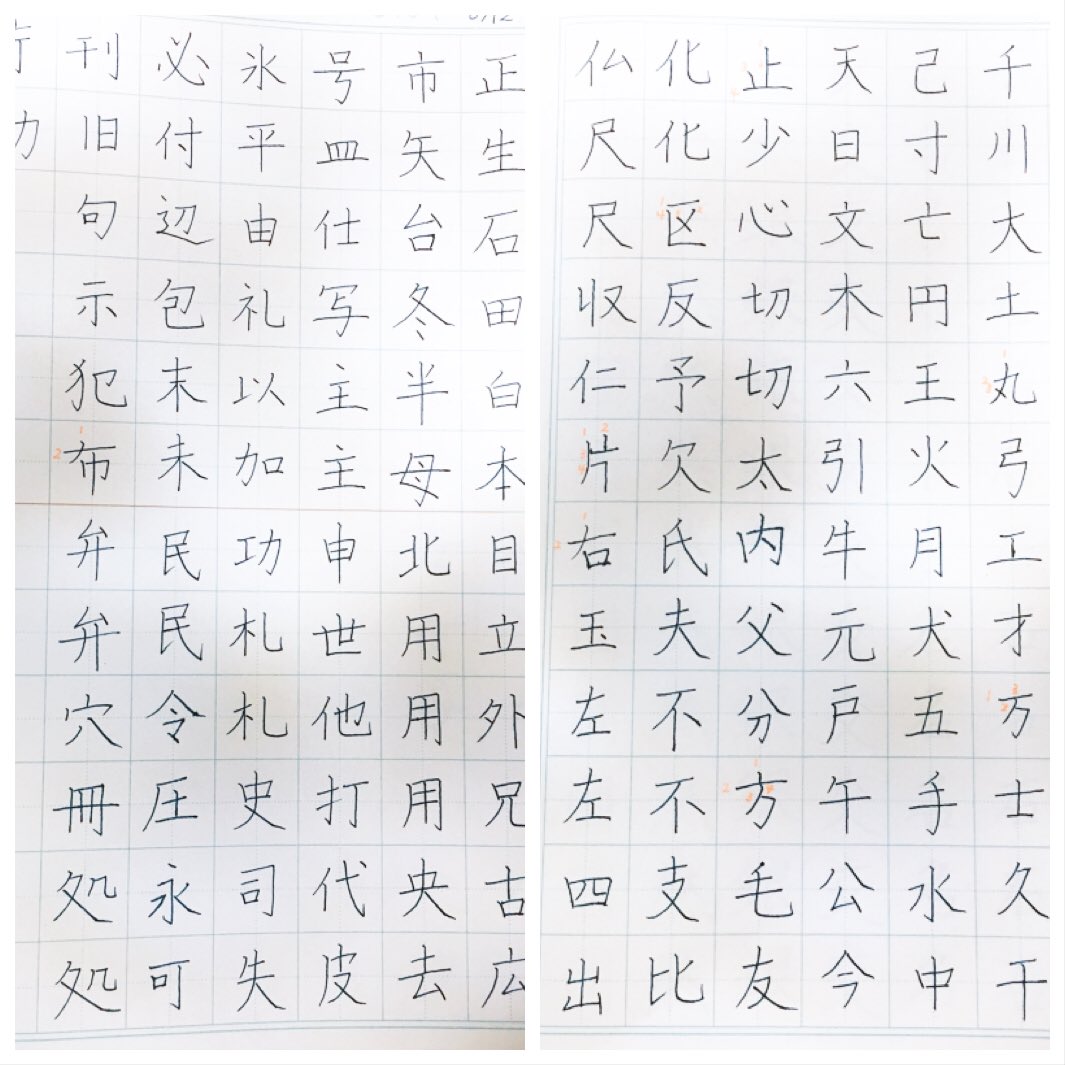 千川大土丸弓工才万士久干
己寸亡円王火月犬五手水中
天日文木六引牛元戸午公今
止少心切切太内父分方毛友
化化区反予欠氏夫不不支比
仏尺尺収仁片右玉左左四出
正生石田白本目立外兄古広
市矢台冬半母北用用用央去
号皿仕写主主申世他打代皮
氷平由礼以加功札札史司失
必付辺包末未民民令圧永可
刊旧句示犯布弁弁穴冊処処